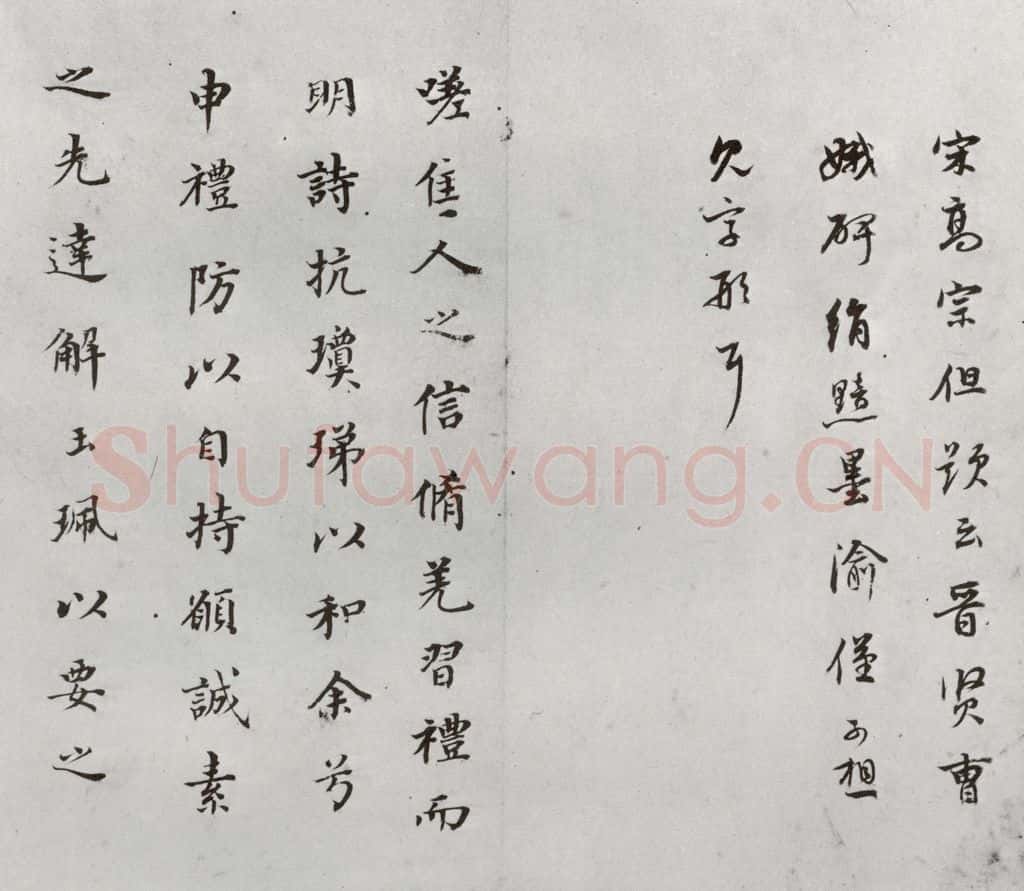 宋高宗但題云晉贤曹
娥碑绢黯墨渝僅可想
見字形耳
嗟佳人之信脩羌習禮而
明詩抗瓊珶以和余兮
申禮防以自持願誠素
之先達解玉珮以要之
Shufawang.CN